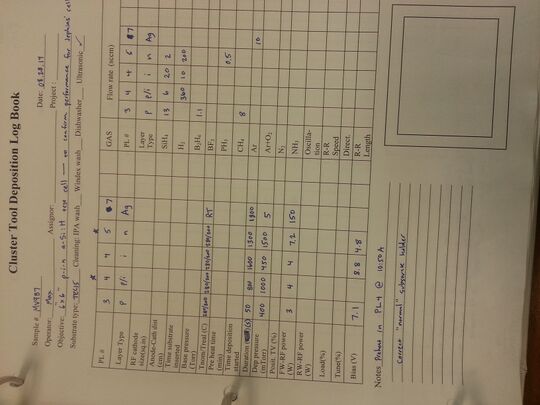 Cluster Tool Deposition Log Book
Sample # MV987 Date: 03.28.14
Operator: Max Assignor: Project:
Objective: 6"x6" p-i-n a-Si:H test cell — to confirm performance for Sephus' cell
Substrate type: Cleaning: IPA wash Windex wash Dishwasher Ultrasonic ✓
PL # 3 4 4 5 7
Layer Type P P/i i n Ag
RF cathode size(sq.in)
Anode-Cath dist (cm)
Time substrate inserted
Base pressure (Torr)
Tsom/Tsrf (C) RT
Pre heat time (min)
Time deposition started
Duration (s) 50 1600 1300 1800
Dep pressure (mTorr) 400 1000 450 1500 5
Posit. TV (%)
FW-RF power (W) 3 4 4 7.2 150
RW-RF power (W)
Load(%)
Tune(%)
Bias (V) 7.1 8.8 4.8
GAS Flow rate (sccm)
PL # 3 4 4 6 7
Layer Type P P/i i n Ag
SiH4 13 6 20 2
H2 360 10 200
B2H6 1.1
BF3
PH3 0.5
CH4 8
Ar 10
Ar+O2
N2
NH3
Oscillation
R-R Speed
Direct.
R-R Length
Notes Preheat in PL4 @ 10:50 A
Correct "normal" substrate holder